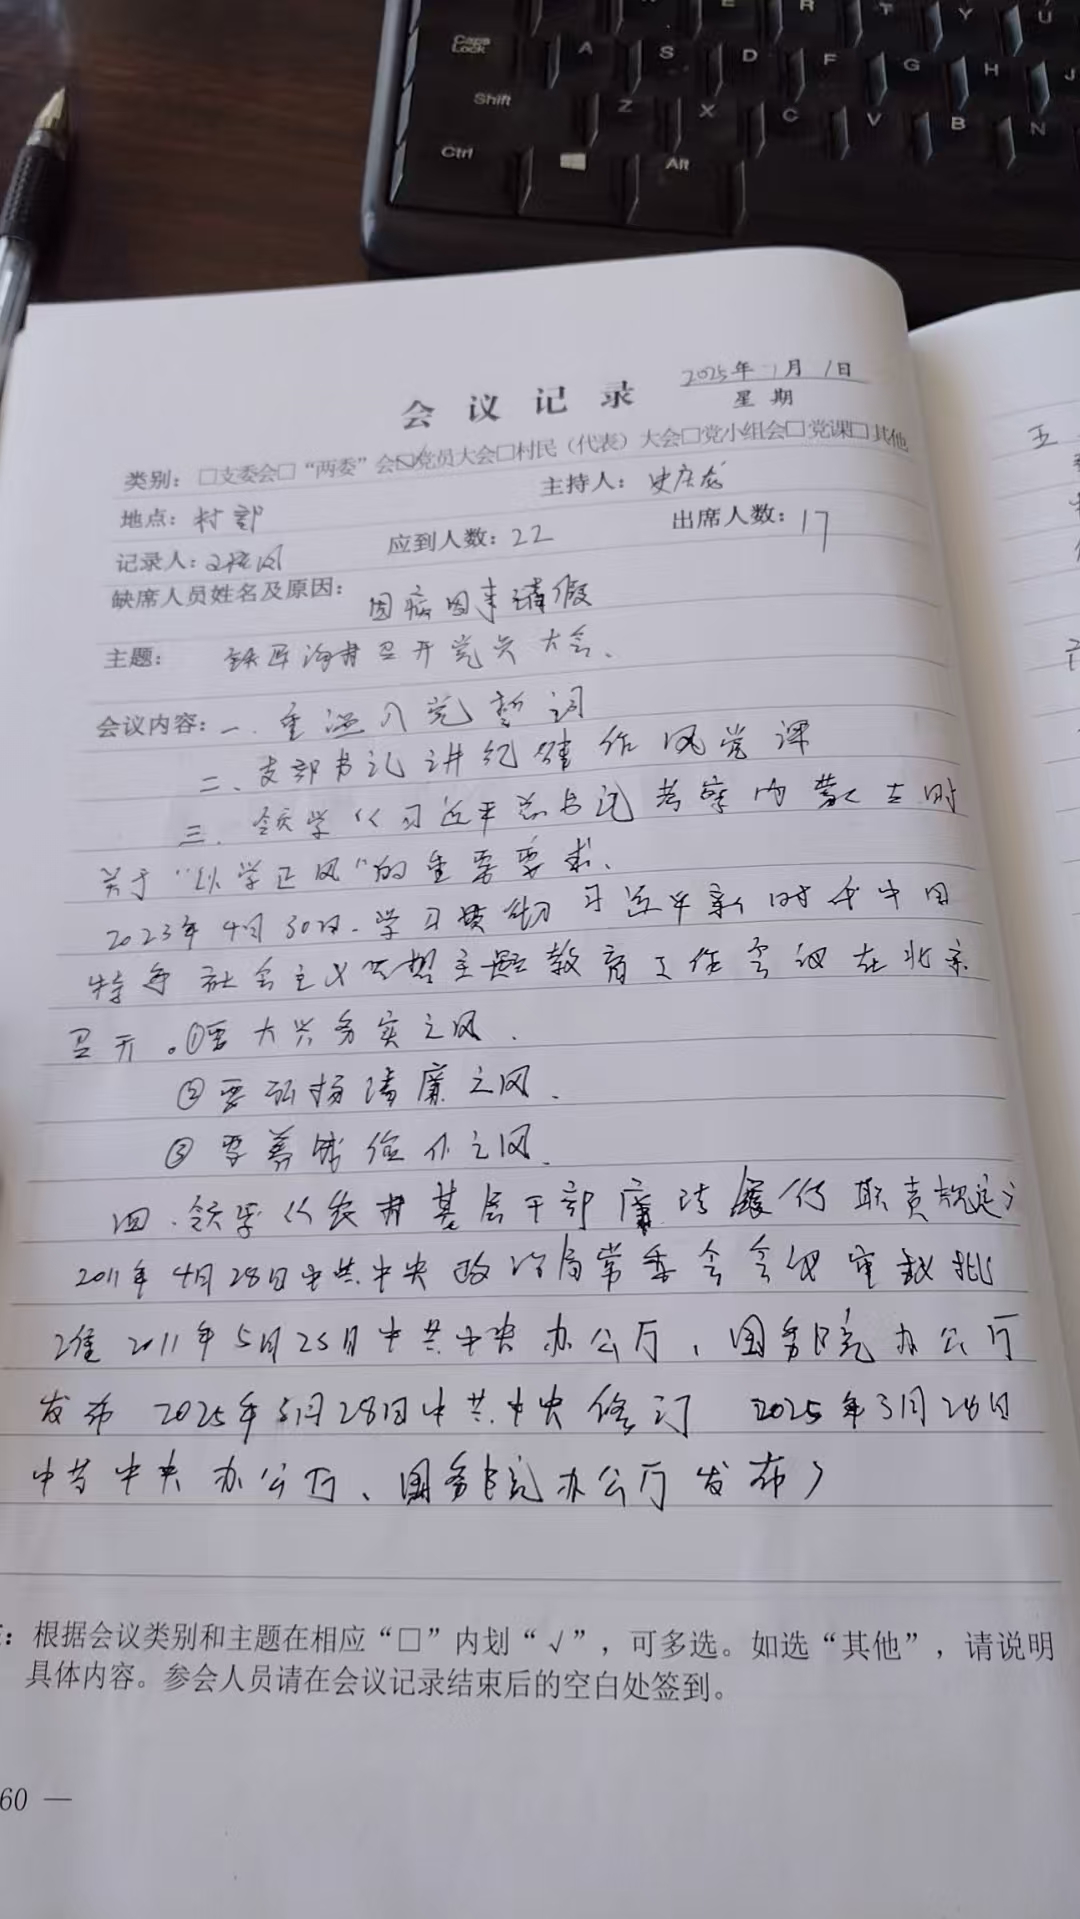 Caps Lock A S D F G H J
E R T Y U
Shift Z X C V B N
Ctrl Alt
会议记录
2025年7月1日
星期
类别：□支委会□“两委”会☑党员大会□村民（代表）大会□党小组会□党课□其他
地点：村部 主持人：史庆龙
记录人： 应到人数：22 出席人数：17
缺席人员姓名及原因：因病因事请假
主题： 村召开党员大会、
会议内容：一、重温入党誓词
二、支部书记讲纪律作风党课
三、领学《习近平总书记考察内蒙古时
关于“以学正风”的重要要求、
2023年4月30日、学习贯彻习近平新时代中国
特色社会主义思想主题教育工作会议在北京
召开。①要大兴务实之风、
②要弘扬清廉之风、
③要养成俭朴之风、
四、领学《农村基层干部廉洁履行职责规定》
2011年4月28日中共中央政治局常委会会议审议批
准 2011年5月25日中共中央办公厅、国务院办公厅
发布 2025年3月28日中共中央修订 2025年3月28日
中共中央办公厅、国务院办公厅发布）
：根据会议类别和主题在相应“□”内划“√”，可多选。如选“其他”，请说明
具体内容。参会人员请在会议记录结束后的空白处签到。
60 —
五